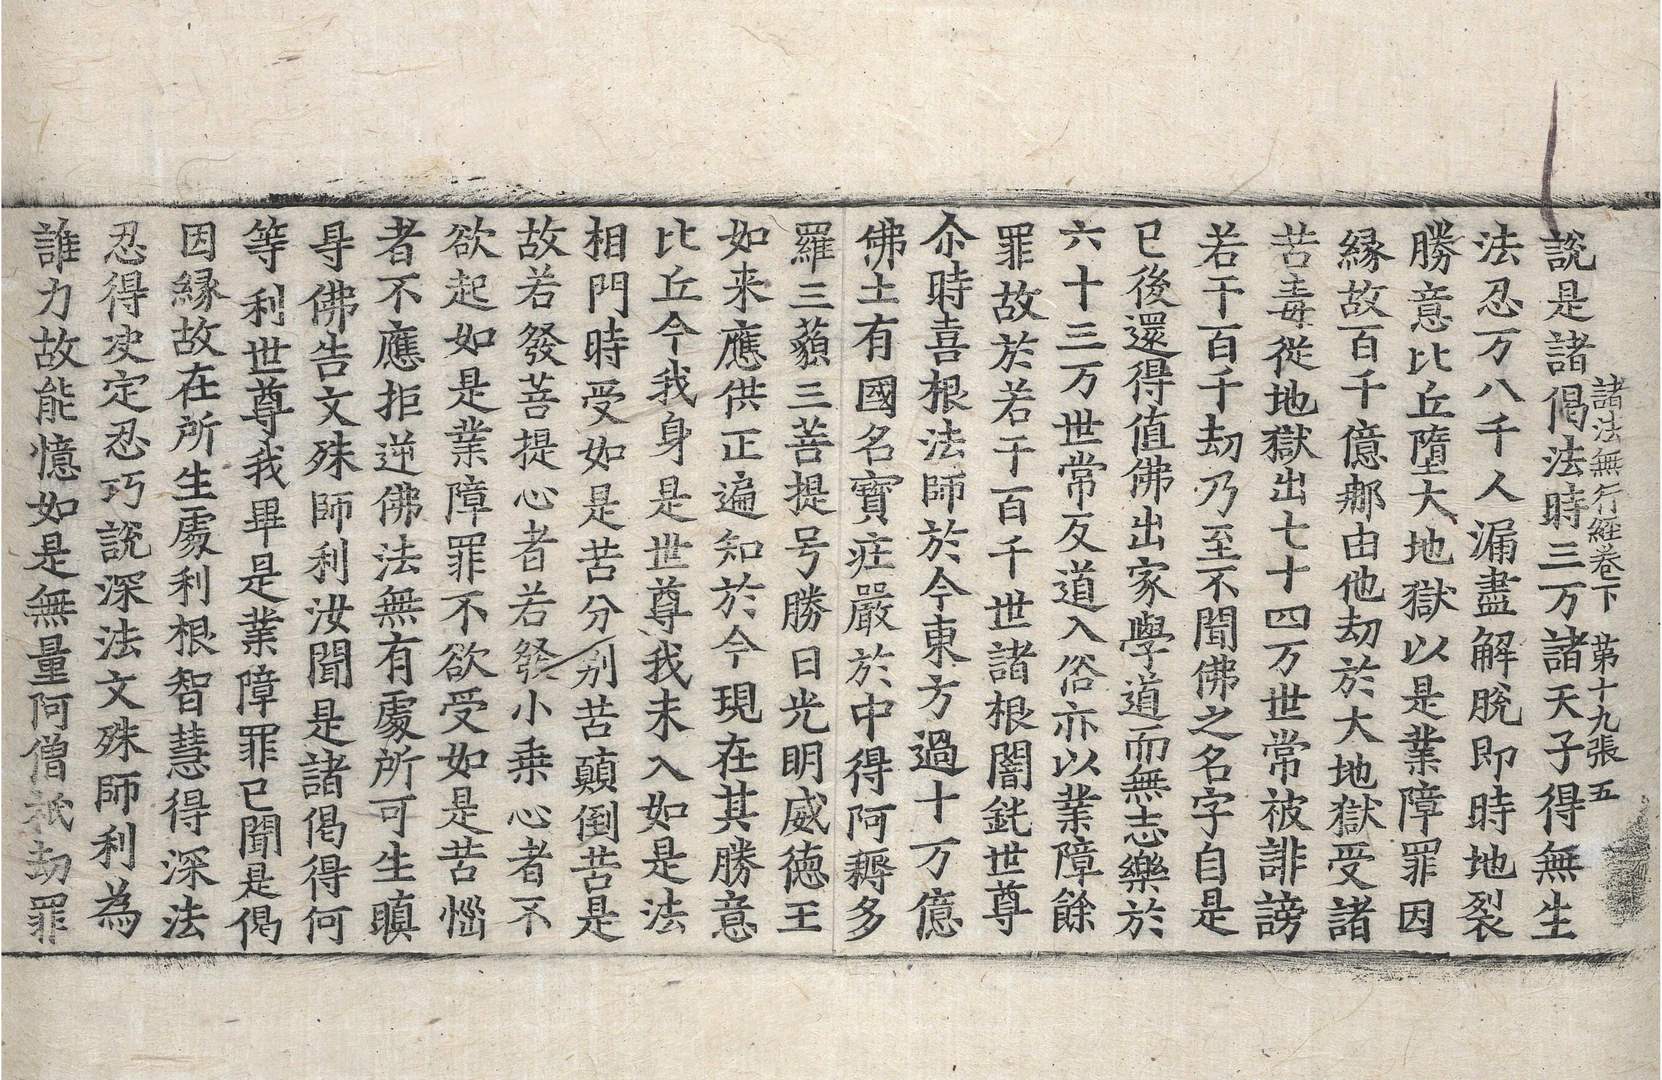 諸法無行經卷下 第十九張 五
說是諸偈法時三万諸天子得無生
法忍万八千人漏盡解脫即時地裂
勝意比丘墮大地獄以是業障罪因
緣故百千億那由他劫於大地獄受諸
苦毒從地獄出七十四万世常被誹謗
若干百千劫乃至不聞佛之名字自是
已後還得值佛出家學道而無志樂於
六十三万世常反道入俗亦以業障餘
罪故於若干百千世諸根闇鈍世尊
尒時喜根法師於今東方過十万億
佛土有國名寶庄嚴於中得阿耨多
羅三藐三菩提号勝日光明威德王
如来應供正遍知於今現在其勝意
比丘今我身是世尊我未入如是法
相門時受如是苦分別苦顛倒苦是
故若發菩提心者若發小乘心者不
欲起如是業障罪不欲受如是苦惱
者不應拒逆佛法無有處所可生瞋
㝵佛告文殊師利汝聞是諸偈得何
等利世尊我畢是業障罪已聞是偈
因緣故在所生處利根智慧得深法
忍得决定忍巧說深法文殊師利為
誰力故能憶如是無量阿僧祇劫罪